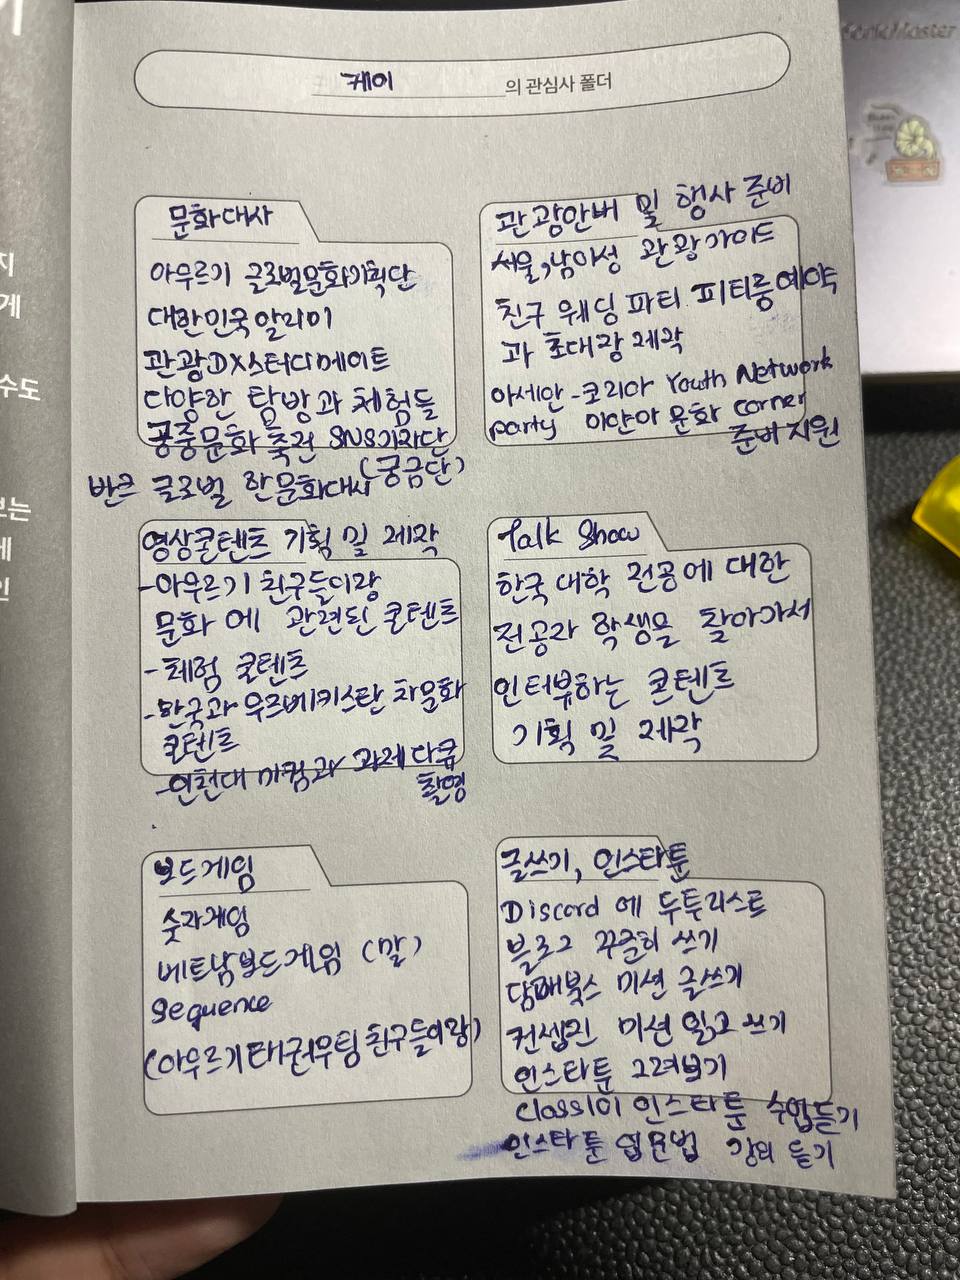 케이 의 관심사 폴더
문화대사
아우르기 글로벌문화기획단
대한민국알리미
관광DX스터디메이트
다양한 탐방과 체험들
궁중문화축전 SNS기자단
(궁금단)
반크 글로벌 한문화대사
관광안내 및 행사 준비
서울, 남이섬 관광가이드
친구 웨딩 파티 피티룸예약
과 초대장 제작
아세안-코리아 Youth Network
party 미얀마 문화 corner
준비지원
영상콘텐츠 기획 및 제작
-아우르기 친구들이랑
문화 에 관련된 콘텐츠
-체험 콘텐츠
-한국과 우즈베키스탄 차문화
콘텐츠
-인천대 마컴과 과제 다큐
촬영
Talk Show
한국 대학 전공에 대한
전공자 학생을 찾아가서
인터뷰하는 콘텐츠
기획 및 제작
보드게임
숫자게임
베트남보드게임 (말)
Sequence
(아우르기태권우팅친구들이랑)
글쓰기, 인스타툰
Discord 에 투두리스트
블로그 꾸준히 쓰기
담대북스 미션 글쓰기
컨셉진 미션 읽고 쓰기
인스타툰 그려보기
Class101 인스타툰 수업듣기
인스타툰 입문법 강의 듣기
지
게
수도
는
게
인